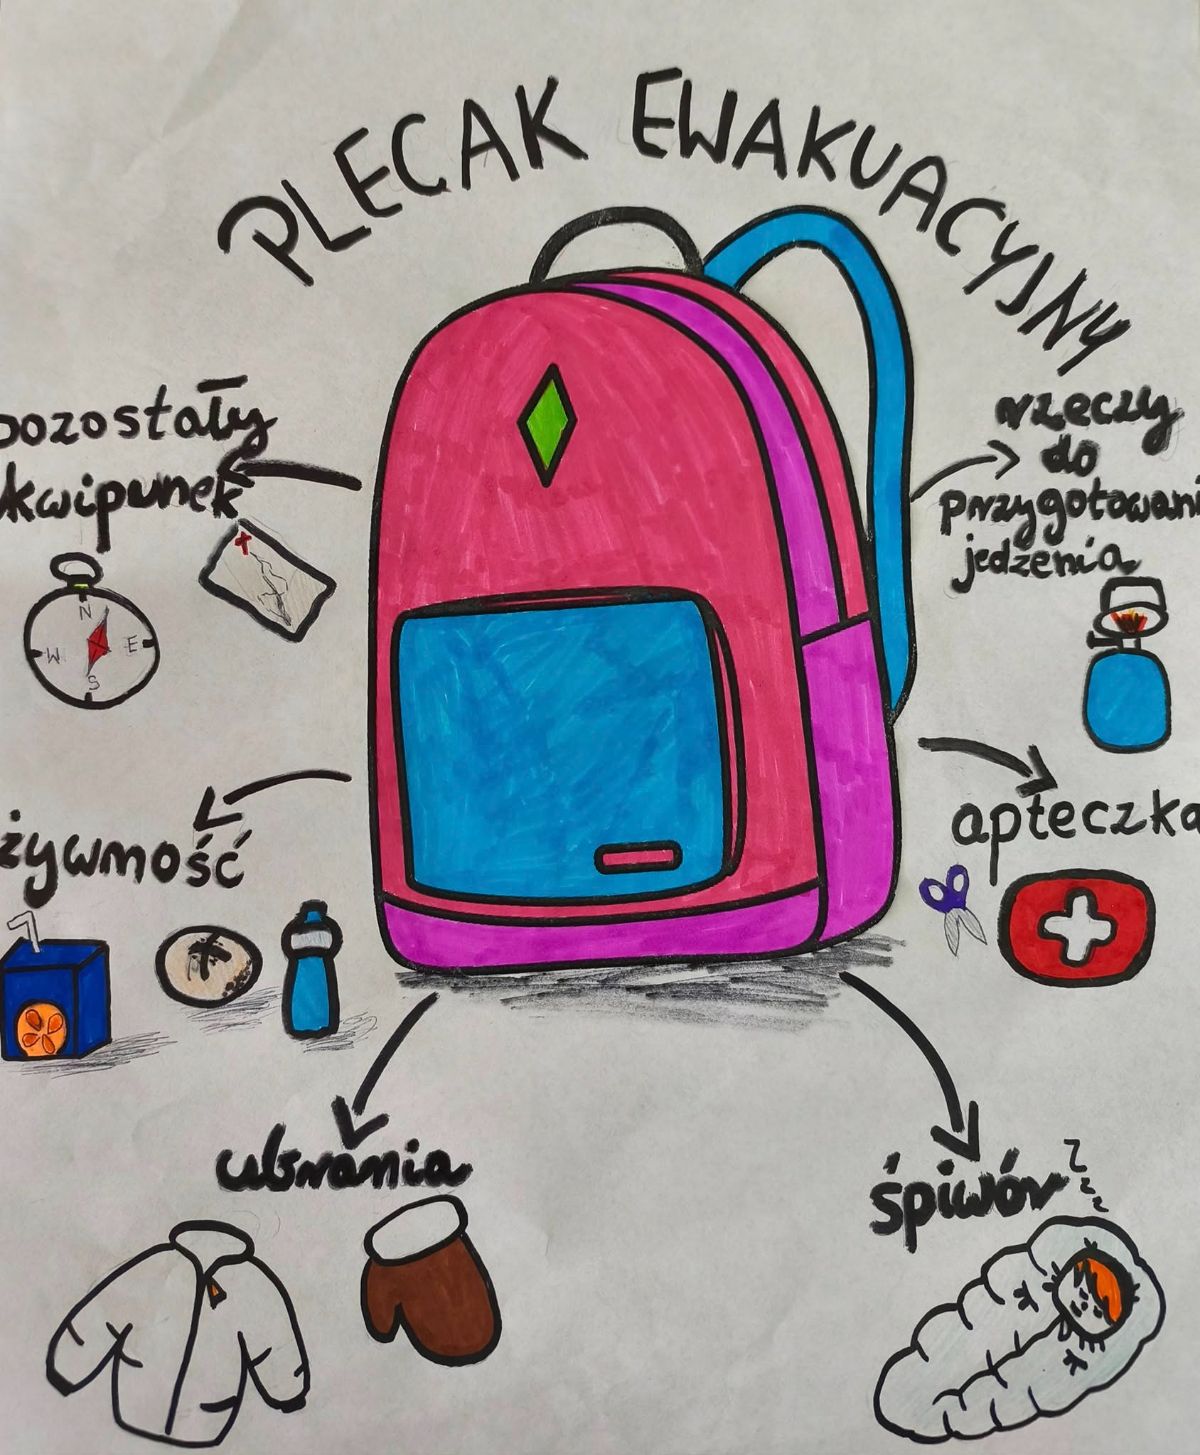 PLECAK EWAKUACYJNY
pozostały
ekwipunek
rzeczy
do
przygotowani
jedzenia
N
W E
S
żywność
apteczka
ubrania
śpiwór
z
z
z